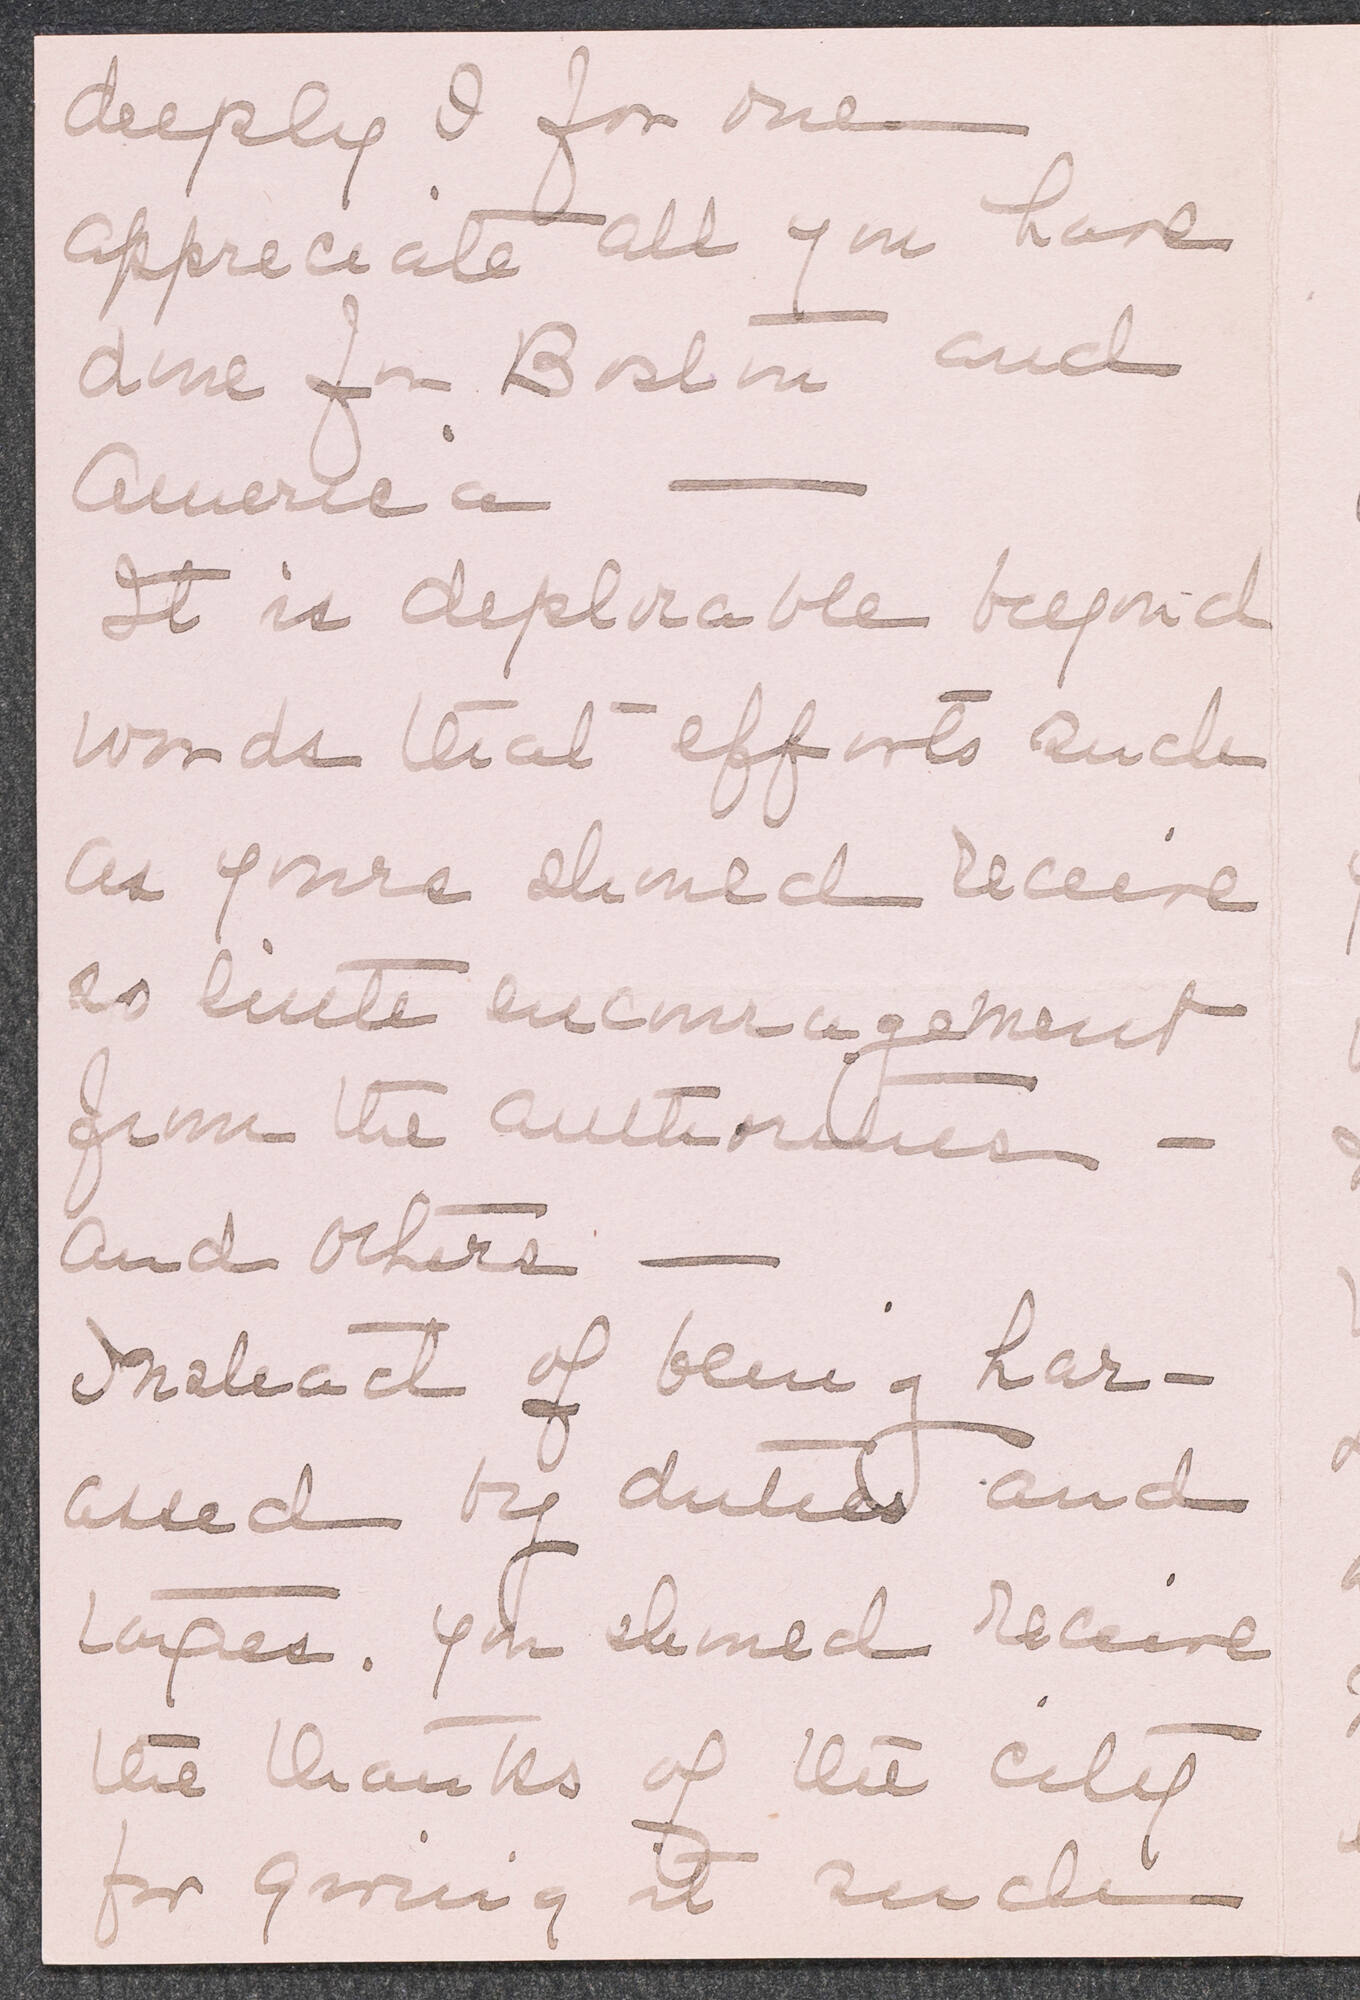 deeply I for one
appreciate all you have
done for Boston and
America —
It is deplorable beyond
words that efforts such
as yours should receive
so little encouragement
from the authorities -
and others —
Instead of being har-
assed by duties and
taxes. you should receive
the thanks of the city
for giving it such